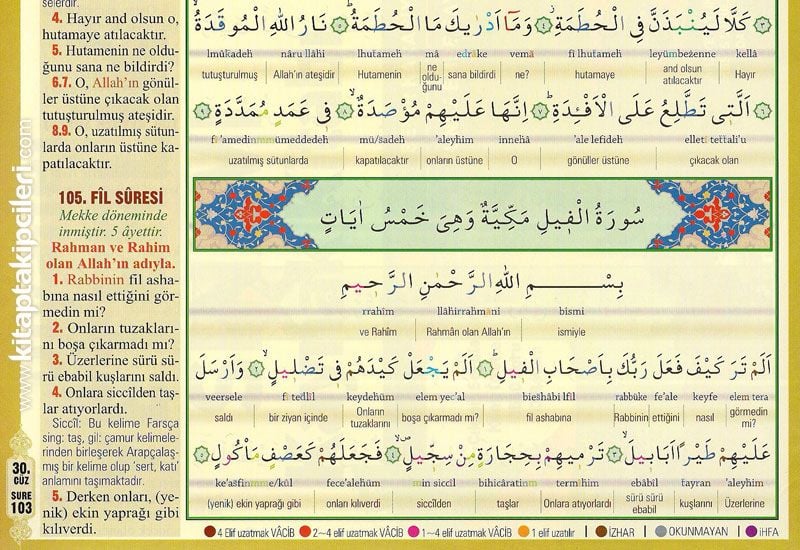 selerdir.
4. Hayır and olsun o,
hutameye atılacaktır.
5. Hutamenin ne oldu-
ğunu sana ne bildirdi?
6.7. O, Allah'ın gönül-
ler üstüne çıkacak olan
tutuşturulmuş ateşidir.
8.9. O, uzatılmış sütun-
larda onların üstüne ka-
patılacaktır.
105. FÎL SÛRESİ
Mekke döneminde
inmiştir. 5 âyettir.
Rahman ve Rahim
olan Allah'ın adıyla.
1. Rabbinin fil asha-
bına nasıl ettiğini gör-
medin mi?
2. Onların tuzakları-
nı boşa çıkarmadı mı?
3. Üzerlerine sürü sü-
rü ebabil kuşlarını saldı.
4. Onlara siccîlden taş-
lar atıyorlardı.
Siccîl: Bu kelime Farsça
sing: taş, gil: çamur kelimele-
rinden birleşerek Arapçalaş-
mış bir kelime olup 'sert, katı'
anlamını taşımaktadır.
5. Derken onları, (ye-
nik) ekin yaprağı gibi
kılıverdi.
30.
CÜZ
SURE
103
www.kitaptakipcileri.com
كَلَّا لَيُنْبَذَنَّ فِي الْحُطَمَةِ ﴿٤﴾ وَمَٓا اَدْرٰيكَ مَا الْحُطَمَةُ ﴿٥﴾ نَارُ اللّٰهِ الْمُوقَدَةُ ﴿٦﴾
lmûkadeh nâru llâhi lhutameh mâ edrâke vemâ fi lhutameh leyümbeżenne kellâ
tutuşturulmuş Allah'ın ateşidir Hutamenin ne oldu-ğunu sana bildirdi ne? hutameye and olsun atılacaktır Hayır
اَلَّتِي تَطَّلِعُ عَلَى الْاَفْـِٔدَةِ ﴿٧﴾ اِنَّهَا عَلَيْهِمْ مُؤْصَدَةٌ ﴿٨﴾ فِي عَمَدٍ مُمَدَّدَةٍ ﴿٩﴾
fî 'amedinmmümeddedeh mü/sadeh 'aleyhim innehâ 'ale lefideh elletî tettali'u
uzatılmış sütunlarda kapatılacaktır onların üstüne O gönüller üstüne çıkacak olan
سُورَةُ الْفِيلِ مَكِّيَّةٌ وَهِىَ خَمْسُ اٰيَاتٍ
بِسْمِ اللّٰهِ الرَّحْمٰنِ الرَّحِيمِ
rrahîm llâhirrahmâni bismi
ve Rahîm Rahmân olan Allah'ın ismiyle
اَلَمْ تَرَ كَيْفَ فَعَلَ رَبُّكَ بِاَصْحَابِ الْفِيلِ ﴿١﴾ اَلَمْ يَجْعَلْ كَيْدَهُمْ فِي تَضْلِيلٍ ﴿٢﴾ وَاَرْسَلَ
veersele fî tedlîl keydehüm elem yec'al bieshâbi lfîl rabbüke fe'ale keyfe elem tera
saldı bir ziyan içinde Onların tuzaklarını boşa çıkarmadı mı? fil ashabına Rabbinin ettiğini nasıl görmedin mi?
عَلَيْهِمْ طَيْرًا اَبَابِيلَ ﴿٣﴾ تَرْمِيهِمْ بِحِجَارَةٍ مِنْ سِجِّيلٍ ﴿٤﴾ فَجَعَلَهُمْ كَعَصْفٍ مَأْكُولٍ ﴿٥﴾
ke'asfinmme/kûl fece'alehüm min siccîl bihicâratim termîhim ebâbîl tayran 'aleyhim
(yenik) ekin yaprağı gibi onları kılıverdi siccîlden taşlar Onlara atıyorlardı sürü sürü ebabil kuşlarını Üzerlerine
4 Elif uzatmak VÂCİB 2~4 elif uzatmak VÂCİB 1~4 elif uzatmak VÂCİB 1 elif uzatılır İZHAR OKUNMAYAN iHFA